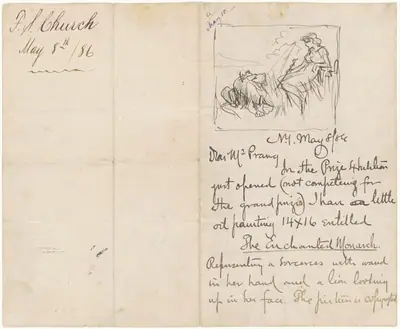 F. S. Church
May 8th/86
N.Y. May 8/86
Dear Mr Prang
In the Prize Exhibition
just opened (not competing for
the grand prize) I have a little
oil painting 14x16 entitled
The Enchanted Monarch.
Representing a sorceress with wand
in her hand and a lion looking
up in her face. The picture is copyrighted